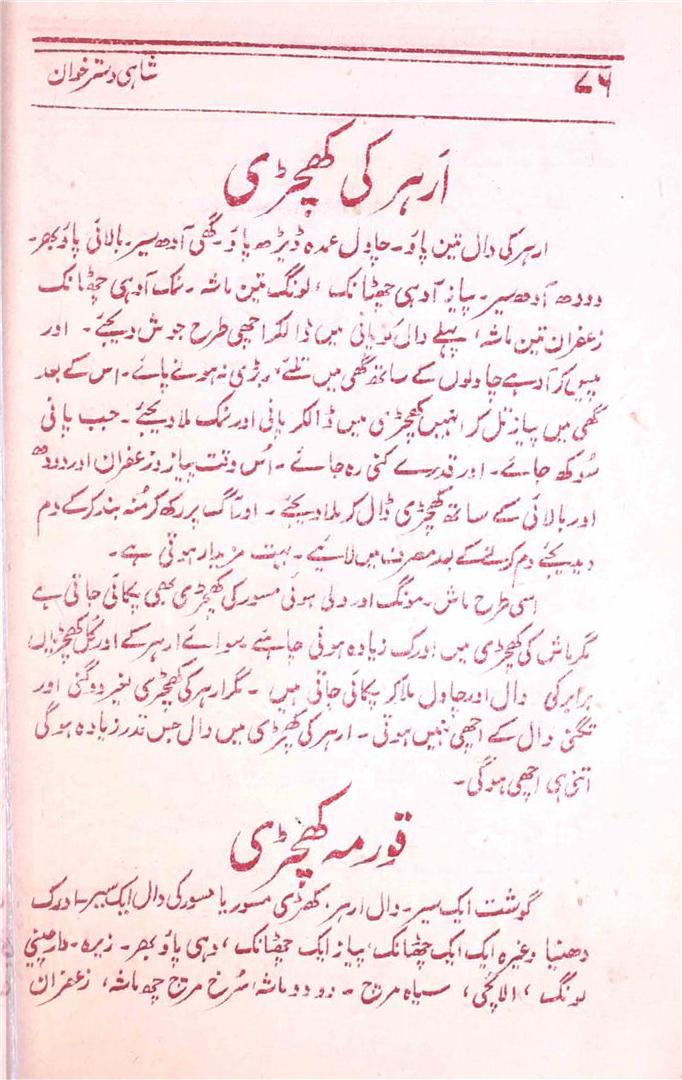 ۷۶
شاہی دسترخوان
ارہر کی کھچڑی
ارہر کی دال تین پاؤ۔ چاول عمدہ ڈیڑھ پاؤ۔ گھی آدھ سیر۔ بالائی پاؤ بھر۔
دودھ آدھ سیر۔ پیاز آدہی چھٹانک، لونگ تین ماشہ۔ نمک آدہی چھٹانک
زعفران تین ماشہ، پہلے دال کو پانی میں ڈالکر اچھی طرح جوش دیجئے۔ اور
پیس کر آدہے چاولوں کے ساتھ گھی میں تلئے، بڑی نہ ہونے پائے۔ اس کے بعد
گھی میں پیاز تل کر انہیں کھچڑی میں ڈالکر پانی اور نمک ملا دیجئے۔ جب پانی
سوکھ جائے۔ اور قدرے کنی رہ جائے۔ اُس وقت پیاز و زعفران اور دودھ
اور بالائی کے ساتھ کھچڑی ڈال کر ملا دیجئے۔ اور آگ پر رکھ کر مُنہ بند کر کے دم
دیدیجئے دم کرنے کے بعد مصرف میں لائیے۔ بہت مزیدار ہوتی ہے۔
اسی طرح ماش۔ مونگ اور دلی ہوئی مسور کی کھچڑی بھی پکائی جاتی ہے
مگر ماش کی کھچڑی میں ادرک زیادہ ہونی چاہئے۔ سوائے ارہر کے اور کُل کھچڑیاں
برابر کی دال اور چاول ملا کر پکائی جاتی ہیں۔ مگر ارہر کی کھچڑی بغیر دوگنی اور
تگنی دال کے اچھی نہیں ہوتی۔ ارہر کی کھچڑی میں دال جس قدر زیادہ ہوگی
اتنی ہی اچھی ہوگی۔
قورمہ کھچڑی
گوشت ایک سیر۔ دال ارہر، کھڑی مسور یا مسور کی دال ایک سیر۔ ادرک
دھنیا وغیرہ ایک ایک چھٹانک، پیاز ایک چھٹانک، دہی پاؤ بھر۔ زیرہ۔ دارچینی
لونگ، الائچی، سیاہ مرچ۔ دو دو ماشہ، سُرخ مرچ چھ ماشہ، زعفران